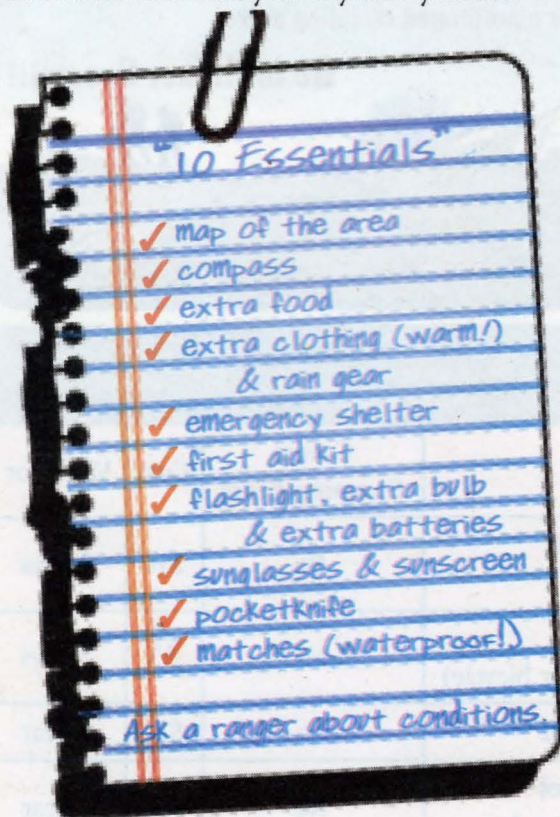 "10 Essentials"
✓ map of the area
✓ compass
✓ extra food
✓ extra clothing (warm!)
& rain gear
✓ emergency shelter
✓ first aid kit
✓ flashlight, extra bulb
& extra batteries
✓ sunglasses & sunscreen
✓ pocketknife
✓ matches (waterproof!)
Ask a ranger about conditions.